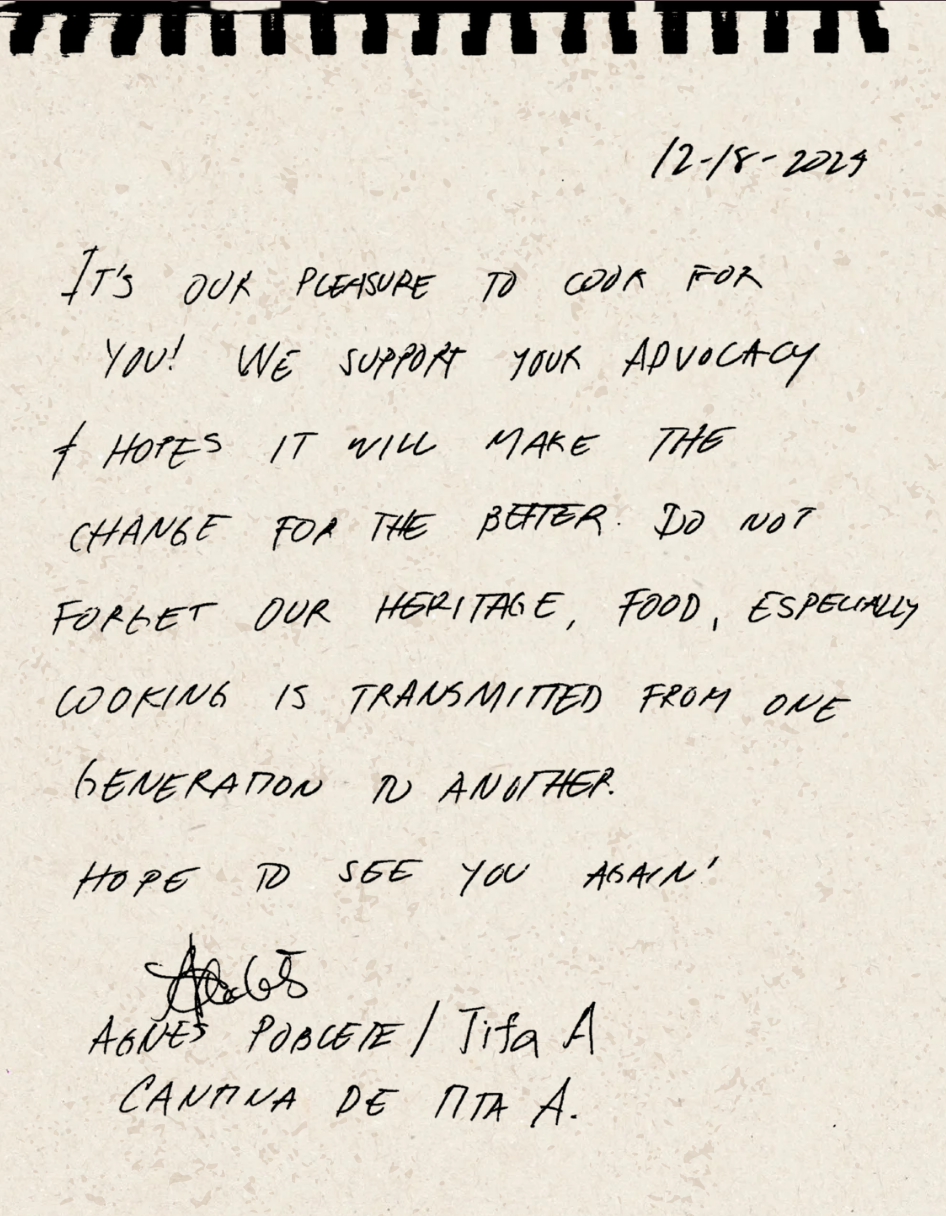 12-18-2024
IT'S OUR PLEASURE TO COOK FOR
YOU! WE SUPPORT YOUR ADVOCACY
& HOPES IT WILL MAKE THE
CHANGE FOR THE BETTER. DO NOT
FORGET OUR HERITAGE, FOOD, ESPECIALLY
COOKING IS TRANSMITTED FROM ONE
GENERATION TO ANOTHER.
HOPE TO SEE YOU AGAIN!
AGNES POBLETE / Tita A
CANTINA DE TITA A.